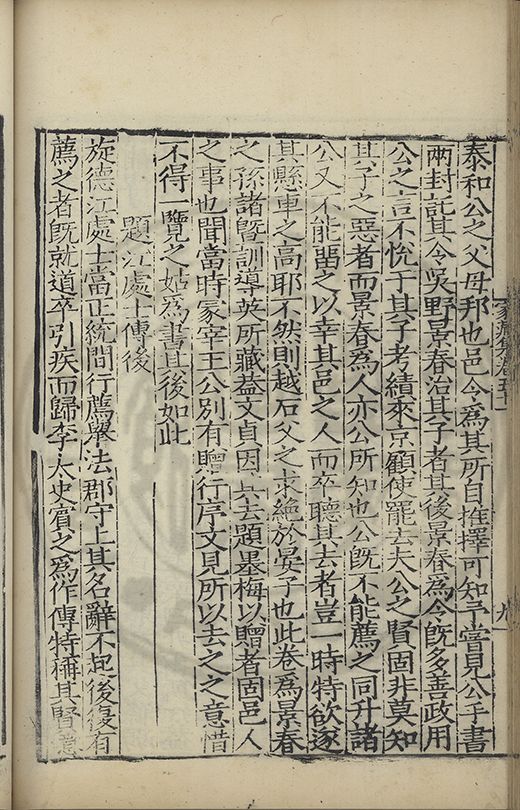 家藏集卷五十一
九
泰和公之父母邦也邑令爲其所自推擇可知予嘗見公手書
兩封託其令吳野景春治其子者其後景春爲令旣多善政用
公之言不悅于其子考績來京顧使罷去夫公之賢固非莫知
其子之惡者而景春爲人亦公所知也公旣不能薦之同升諸
公又不能留之以幸其邑之人而卒聽其去者豈一時特欲遂
其縣車之高耶不然則越石父之求絶於晏子也此卷爲景春
之孫諸曁訓導英所藏葢文貞因其去題墨梅以贈者固邑人
之事也聞當時冢宰王公別有贈行序文見所以去之之意惜
不得一覽之姑爲書其後如此
題江處士傳後
旌德江處士當正統間行薦舉法郡守上其名辭不起後復有
薦之者旣就道卒引疾而歸李太史賓之爲作傳特稱其賢意